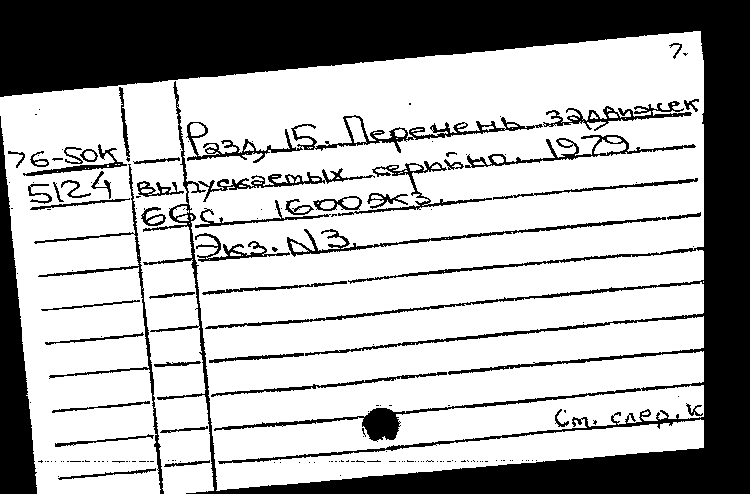 7.
Разд. 15. Перечень задвижек
76-50к
5124 выпускаемых серийно. 1979.
66с. 1600экз.
Экз. N3.
См. след. к